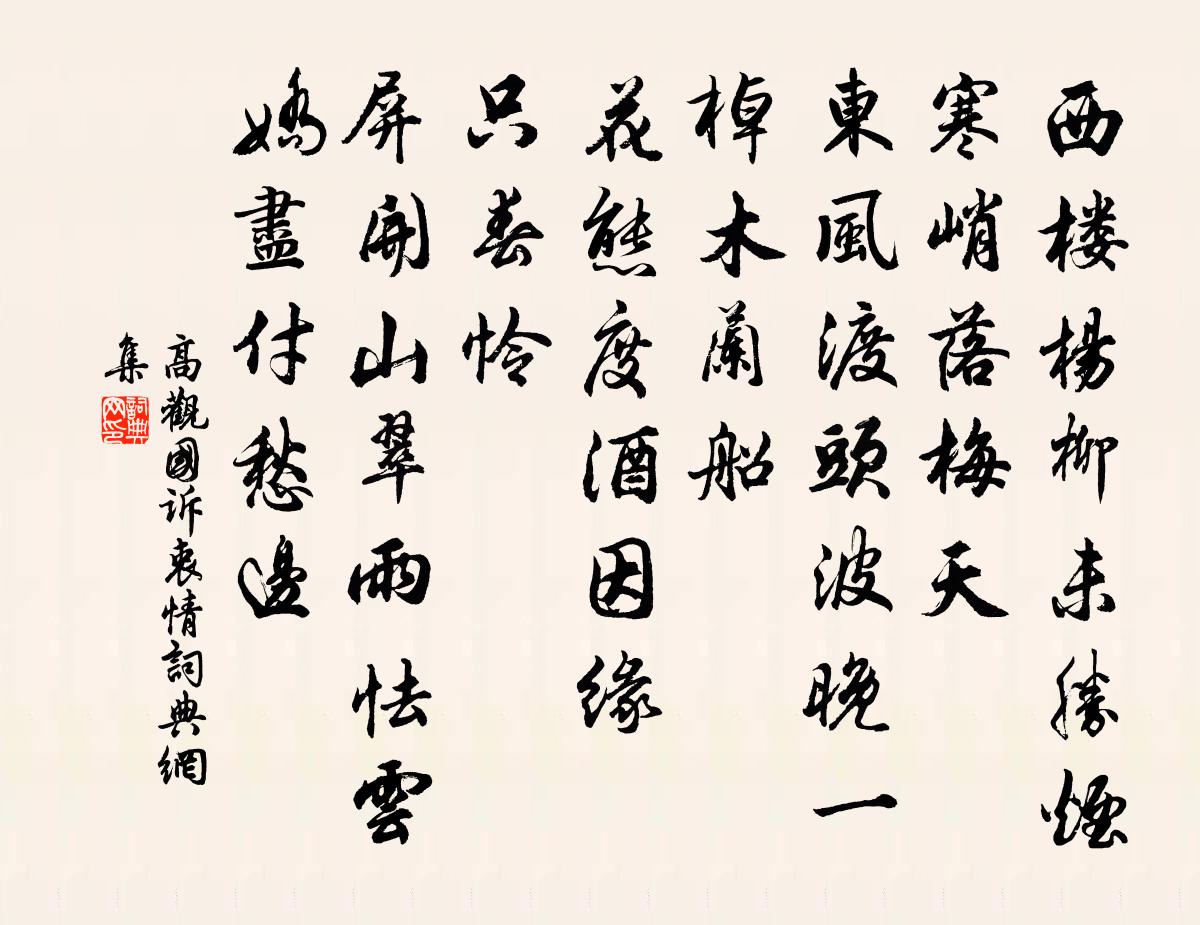 西楼楊柳未勝煙
寒峭落梅天
東風渡頭波晚一
棹木蘭船
花態度酒因缘
只春怜
屏開山翠雨怯雲
嬌盡付愁邊
高觀國诉衷情詞典網
集
詞典
网印